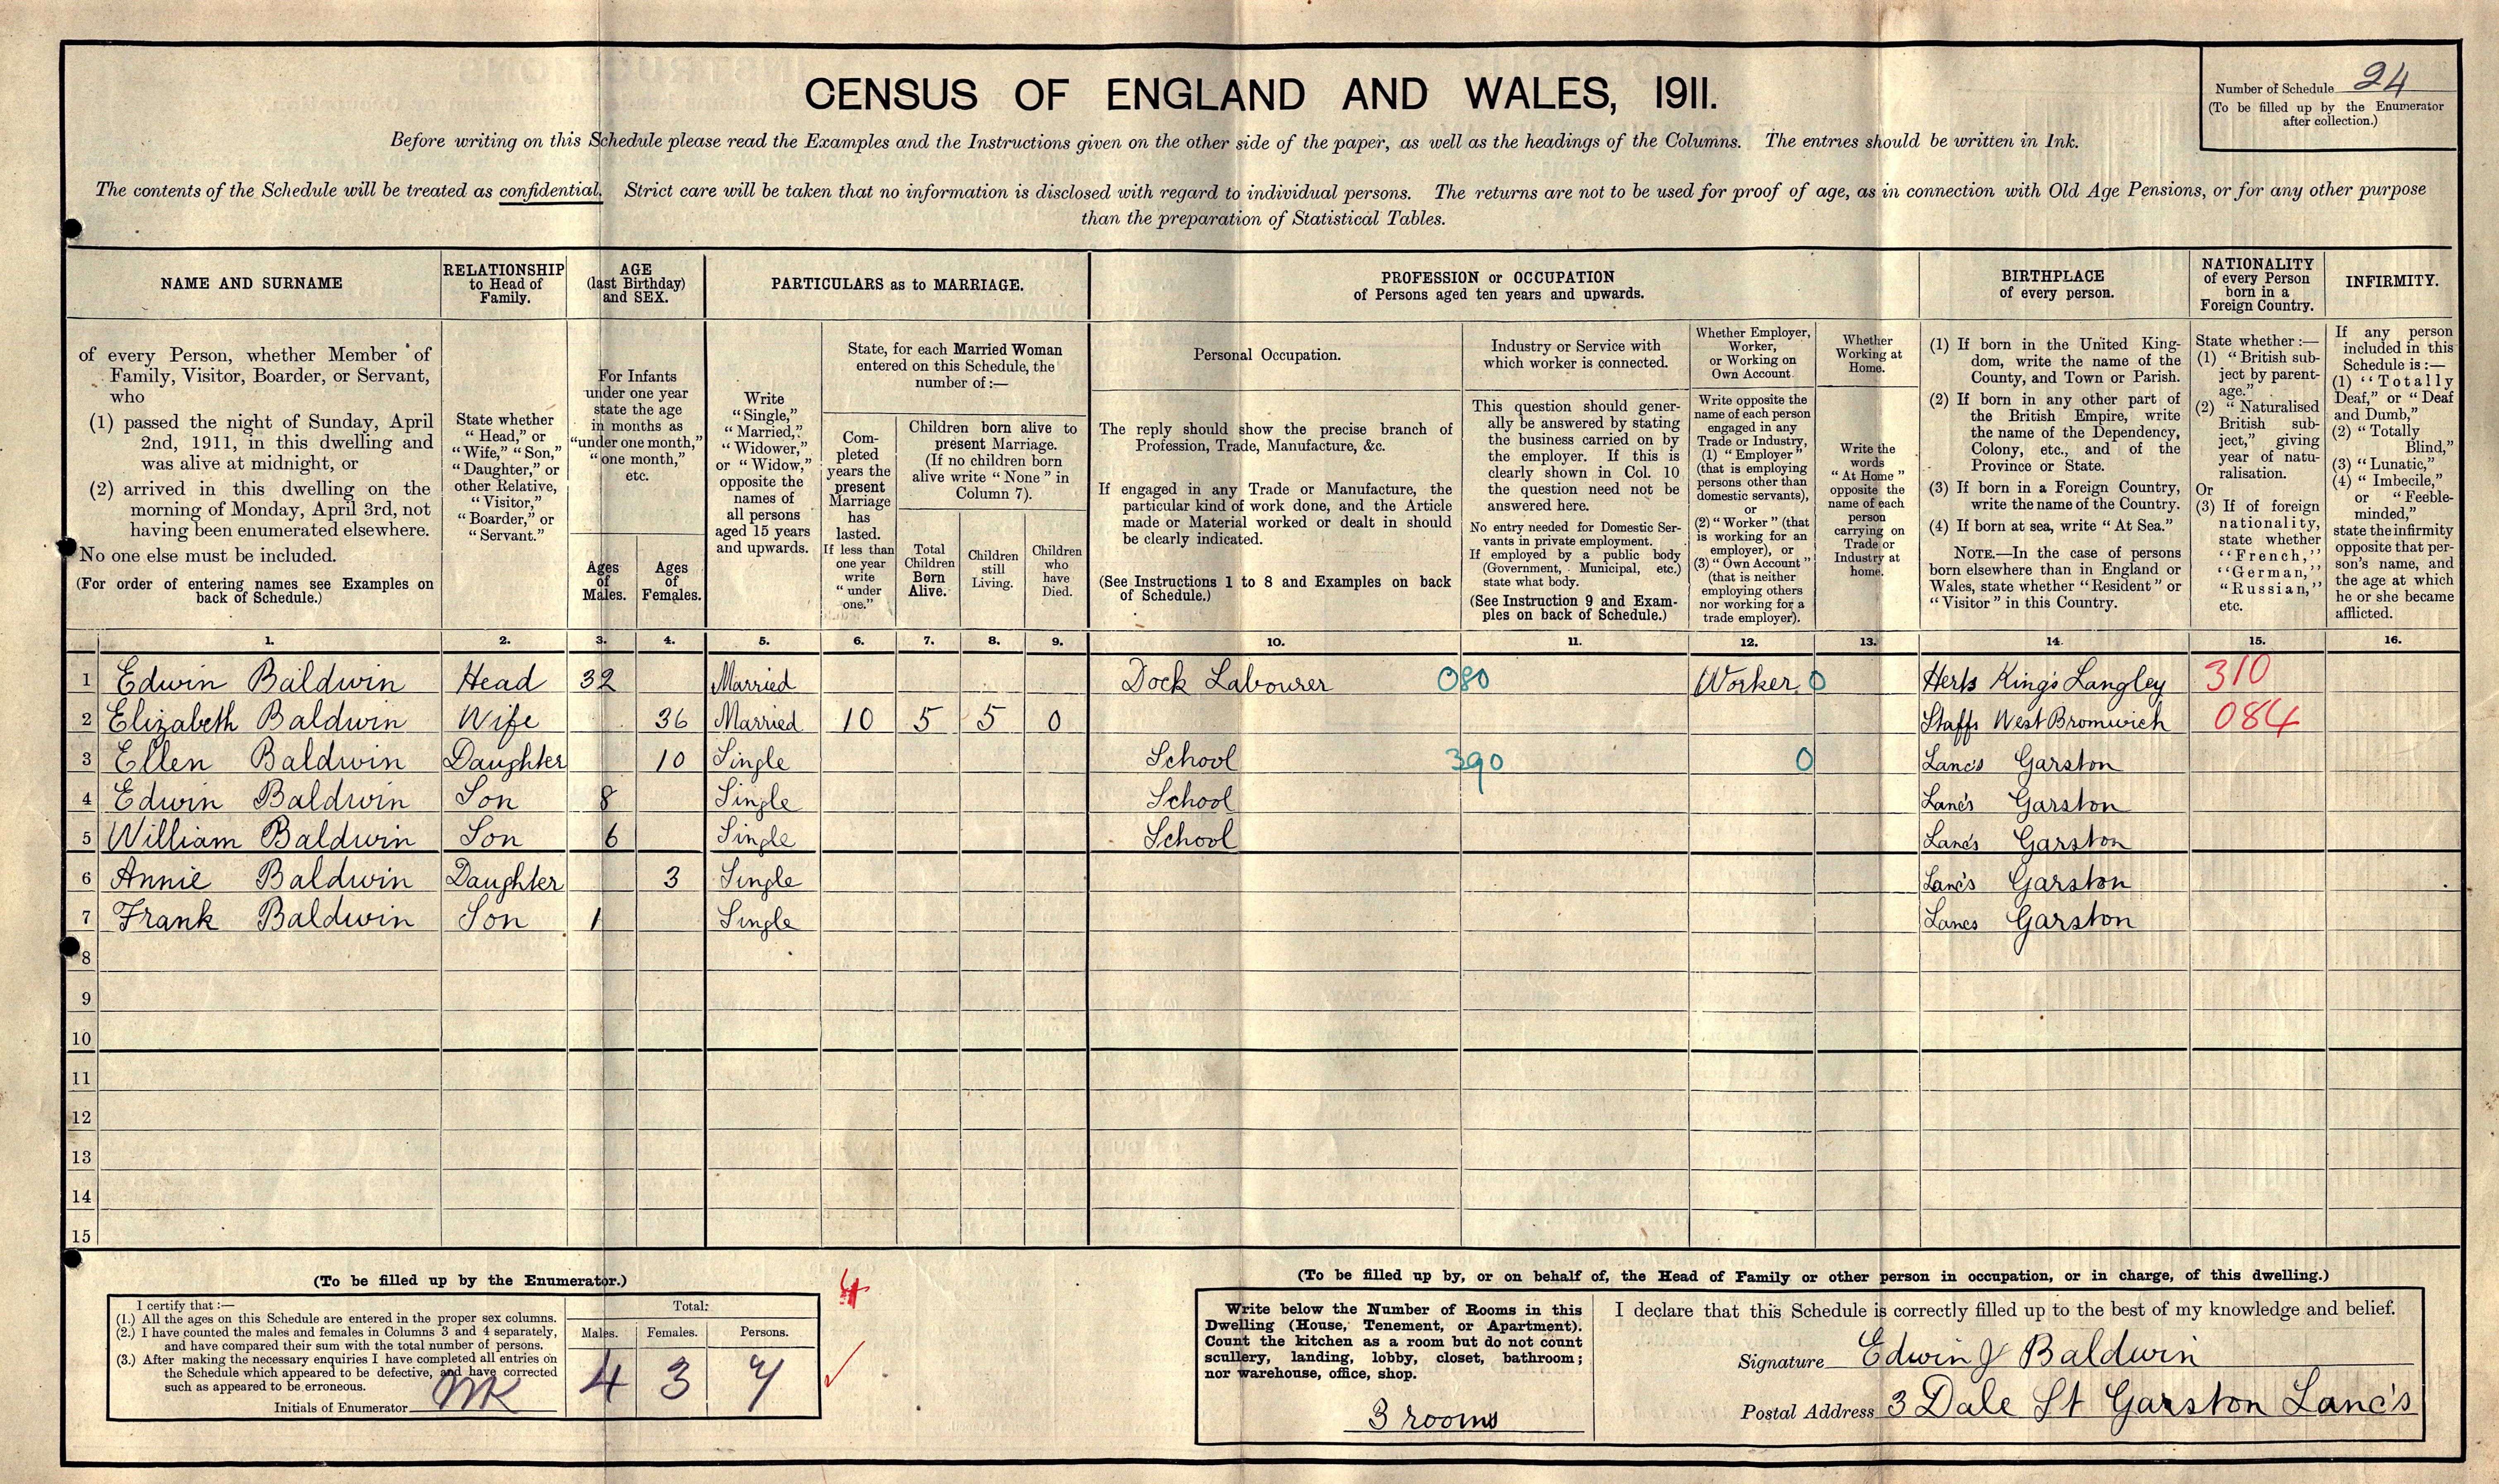 CENSUS OF ENGLAND AND WALES, 1911.
Number of Schedule 24
(To be filled up by the Enumerator
after collection.)
Before writing on this Schedule please read the Examples and the Instructions given on the other side of the paper, as well as the headings of the Columns. The entries should be written in Ink.
The contents of the Schedule will be treated as confidential. Strict care will be taken that no information is disclosed with regard to individual persons. The returns are not to be used for proof of age, as in connection with Old Age Pensions, or for any other purpose
than the preparation of Statistical Tables.
NAME AND SURNAME
of every Person, whether Member of
Family, Visitor, Boarder, or Servant,
who
(1) passed the night of Sunday, April
2nd, 1911, in this dwelling and
was alive at midnight, or
(2) arrived in this dwelling on the
morning of Monday, April 3rd, not
having been enumerated elsewhere.
No one else must be included.
(For order of entering names see Examples on
back of Schedule.)
RELATIONSHIP
to Head of
Family.
State whether
"Head," or
"Wife," "Son,"
"Daughter," or
other Relative,
"Visitor,"
"Boarder," or
"Servant."
AGE
(last Birthday)
and SEX.
For Infants
under one year
state the age
in months as
"under one month,"
"one month,"
etc.
Ages
of
Males.
Ages
of
Females.
PARTICULARS as to MARRIAGE.
Write
"Single,"
"Married,"
"Widower,"
or "Widow,"
opposite the
names of
all persons
aged 15 years
and upwards.
State, for each Married Woman
entered on this Schedule, the
number of:—
Com-
pleted
years the
present
Marriage
has
lasted.
If less than
one year
write
"under
one."
Children born alive to
present Marriage.
(If no children born
alive write "None" in
Column 7).
Total
Children
Born
Alive.
Children
still
Living.
Children
who
have
Died.
PROFESSION or OCCUPATION
of Persons aged ten years and upwards.
Personal Occupation.
The reply should show the precise branch of
Profession, Trade, Manufacture, &c.
If engaged in any Trade or Manufacture, the
particular kind of work done, and the Article
made or Material worked or dealt in should
be clearly indicated.
(See Instructions 1 to 8 and Examples on back
of Schedule.)
Industry or Service with
which worker is connected.
This question should gener-
ally be answered by stating
the business carried on by
the employer. If this is
clearly shown in Col. 10
the question need not be
answered here.
No entry needed for Domestic Ser-
vants in private employment.
If employed by a public body
(Government, Municipal, etc.)
state what body.
(See Instruction 9 and Exam-
ples on back of Schedule.)
Whether Employer,
Worker,
or Working on
Own Account.
Write opposite the
name of each person
engaged in any
Trade or Industry,
(1) "Employer"
(that is employing
persons other than
domestic servants),
or
(2) "Worker" (that
is working for an
employer), or
(3) "Own Account"
(that is neither
employing others
nor working for a
trade employer).
Whether
Working at
Home.
Write the
words
"At Home"
opposite the
name of each
person
carrying on
Trade or
Industry at
home.
BIRTHPLACE
of every person.
(1) If born in the United King-
dom, write the name of the
County, and Town or Parish.
(2) If born in any other part of
the British Empire, write
the name of the Dependency,
Colony, etc., and of the
Province or State.
(3) If born in a Foreign Country,
write the name of the Country.
(4) If born at sea, write "At Sea."
NOTE.—In the case of persons
born elsewhere than in England or
Wales, state whether "Resident" or
"Visitor" in this Country.
NATIONALITY
of every Person
born in a
Foreign Country.
State whether:—
(1) "British sub-
ject by parent-
age."
(2) "Naturalised
British sub-
ject," giving
year of natu-
ralisation.
Or
(3) If of foreign
nationality,
state whether
"French,"
"German,"
"Russian,"
etc.
INFIRMITY.
If any person
included in this
Schedule is:—
(1) "Totally
Deaf," or "Deaf
and Dumb,"
(2) "Totally
Blind,"
(3) "Lunatic,"
(4) "Imbecile,"
or "Feeble-
minded,"
state the infirmity
opposite that per-
son's name, and
the age at which
he or she became
afflicted.
1. 2. 3. 4. 5. 6. 7. 8. 9. 10. 11. 12. 13. 14. 15. 16.
1 Edwin Baldwin Head 32 Married Dock Labourer 080 Worker 0 Herts King's Langley 310
2 Elizabeth Baldwin Wife 36 Married 10 5 5 0 Staffs West Bromwich 084
3 Ellen Baldwin Daughter 10 Single School 390 0 Lanc's Garston
4 Edwin Baldwin Son 8 Single School Lanc's Garston
5 William Baldwin Son 6 Single School Lancs Garston
6 Annie Baldwin Daughter 3 Single Lanc's Garston
7 Frank Baldwin Son 1 Single Lancs Garston
8
9
10
11
12
13
14
15
(To be filled up by the Enumerator.)
I certify that:—
(1.) All the ages on this Schedule are entered in the proper sex columns.
(2.) I have counted the males and females in Columns 3 and 4 separately,
and have compared their sum with the total number of persons.
(3.) After making the necessary enquiries I have completed all entries on
the Schedule which appeared to be defective, and have corrected
such as appeared to be erroneous.
Initials of Enumerator
Total:
Males. Females. Persons.
4 3 7
(To be filled up by, or on behalf of, the Head of Family or other person in occupation, or in charge, of this dwelling.)
Write below the Number of Rooms in this
Dwelling (House, Tenement, or Apartment).
Count the kitchen as a room but do not count
scullery, landing, lobby, closet, bathroom;
nor warehouse, office, shop.
3 rooms
I declare that this Schedule is correctly filled up to the best of my knowledge and belief.
Signature Edwin J Baldwin
Postal Address 3 Dale St Garston Lanc's